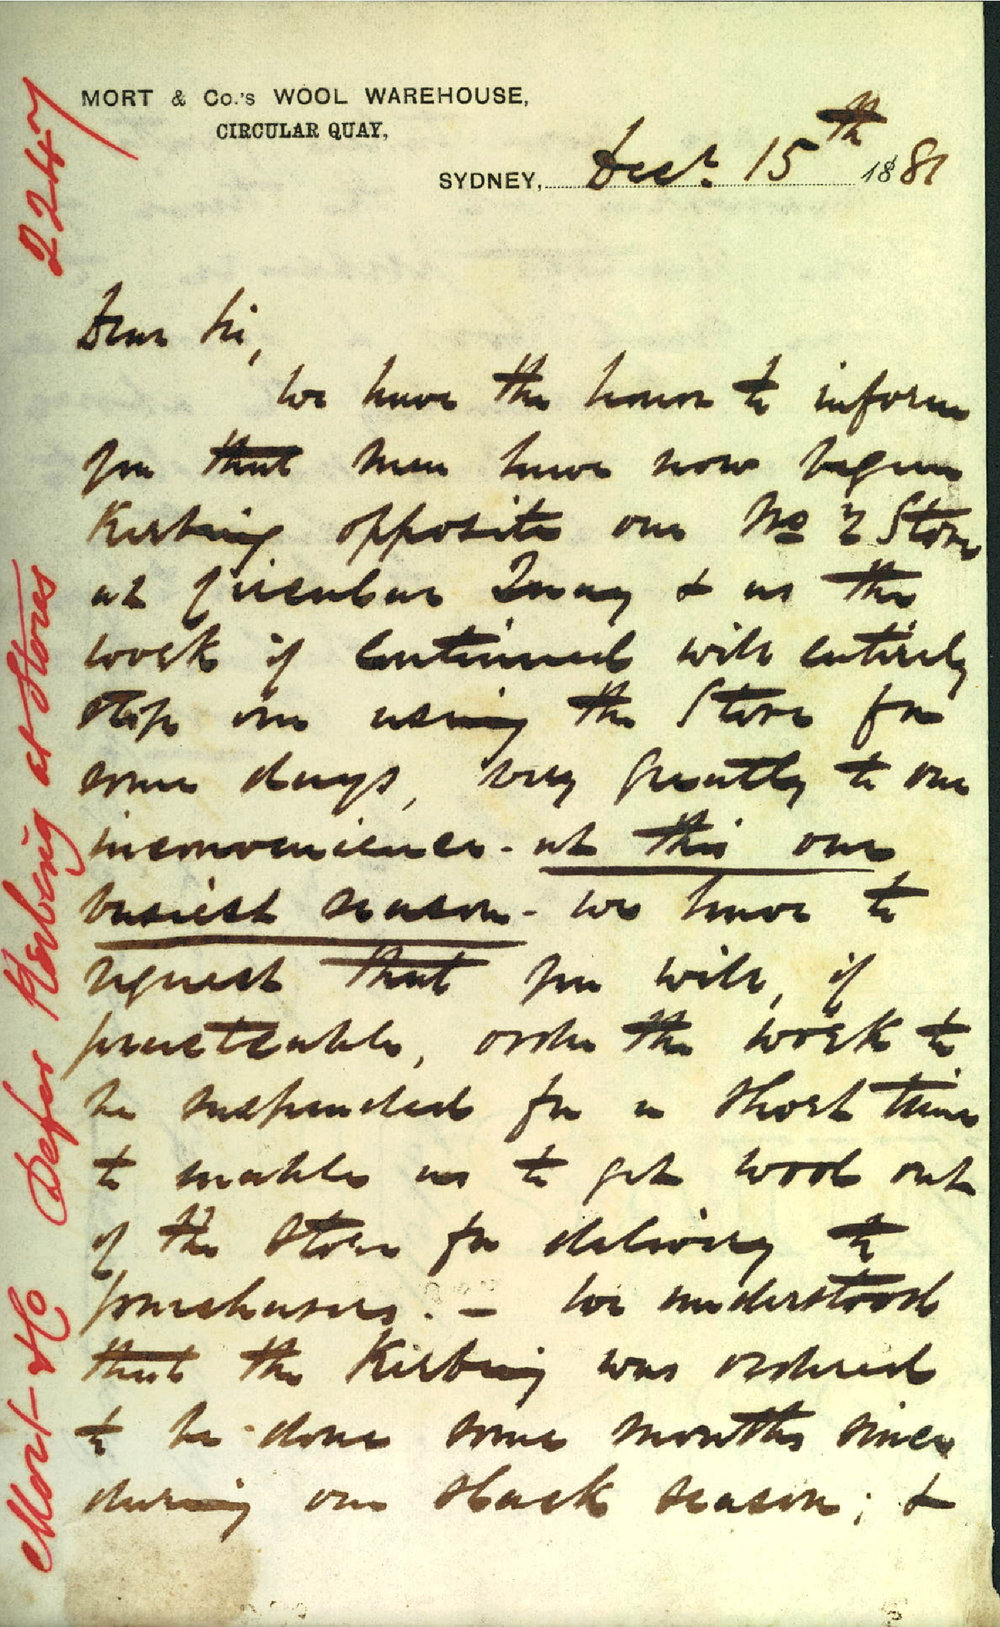 MORT & Co.'s WOOL WAREHOUSE,
CIRCULAR QUAY,
SYDNEY, Decr. 15th 1881
Dear Sir,
We have the honor to inform
you that men have now begun
Kerbing opposite our No 2 Store
at Circular Quay & as the
work if continued will entirely
stop our using the Store for
some days, very greatly to our
inconvenience - at this our
busiest season - we have to
request that you will, if
practicable, order the work to
be suspended for a short time
to enable us to get wool out
of the Store for delivery to
purchasers. - We understood
that the Kerbing was ordered
to be done some months since
during our slack season; &
Mort & Co Defer Kerbing at Stores
2247